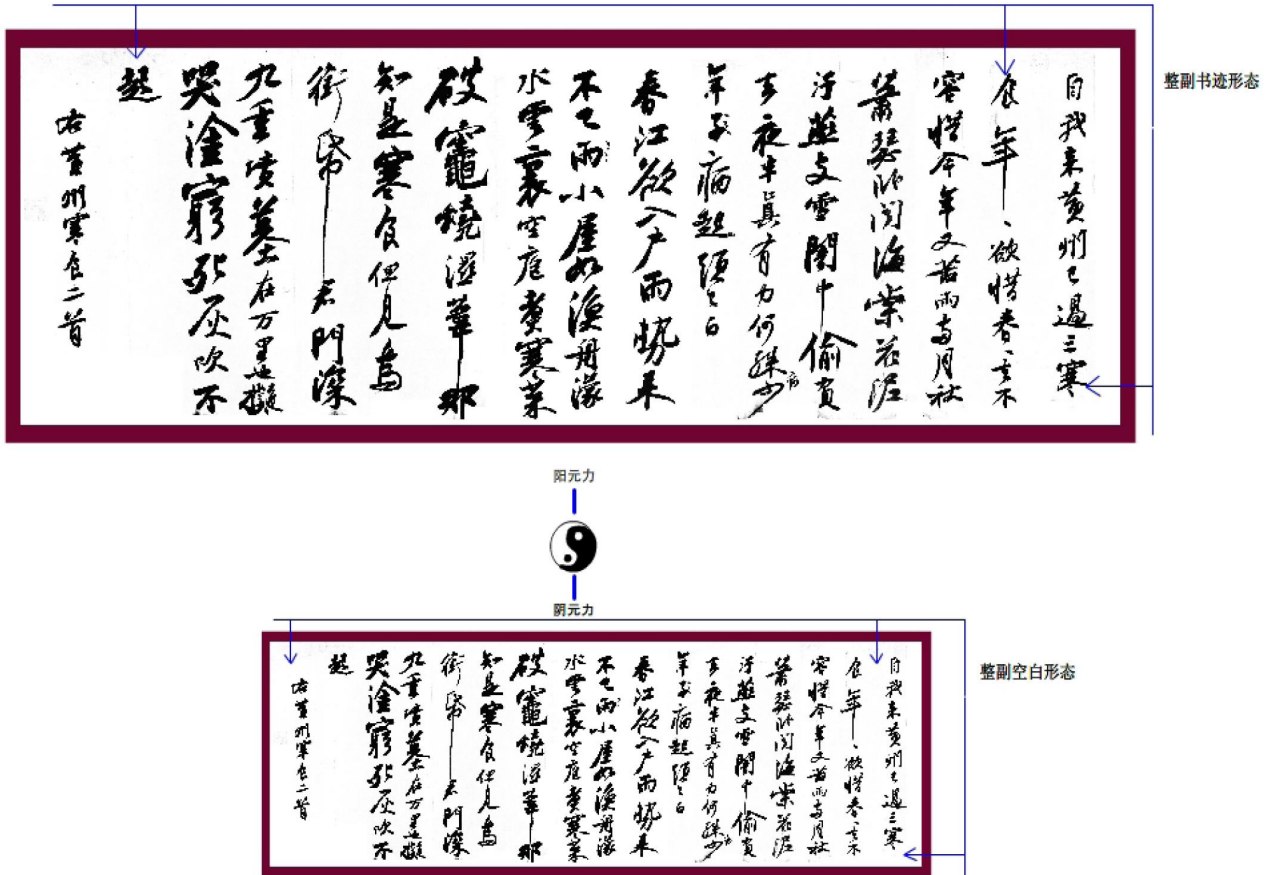 整副书迹形态
自我来黄州已過三寒
食年〻欲惜春〻去不
容惜今年又苦雨兩月秋
蕭瑟卧聞海棠花泥
汙燕支雪闇中偷負
去夜半真有力何殊少病
年子病起頭已白
春江欲入户雨勢来
不已雨小屋如漁舟濛
水雲裏空庖煑寒菜
破竈燒濕葦那
知是寒食但見烏
銜帋君門深
九重墳墓在万里也擬
哭塗窮死灰吹不
起
右黄州寒食二首
阳元力
阴元力
整副空白形态
自我来黄州已過三寒
食年〻欲惜春〻去不
容惜今年又苦雨兩月秋
蕭瑟卧聞海棠花泥
汙燕支雪闇中偷負
去夜半真有力何殊少病
年子病起頭已白
春江欲入户雨勢来
不已雨小屋如漁舟濛
水雲裏空庖煑寒菜
破竈燒濕葦那
知是寒食但見烏
銜帋君門深
九重墳墓在万里也擬
哭塗窮死灰吹不
起
右黄州寒食二首